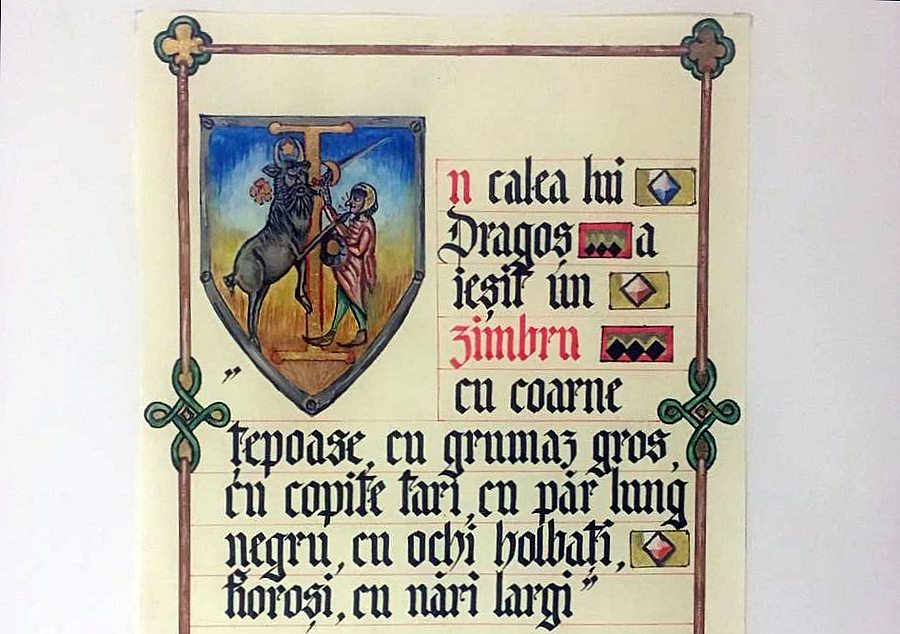 „In calea lui
Dragoș a
ieșit un
zimbru
cu coarne
țepoase, cu grumaz gros,
cu copite tari, cu păr lung
negru, cu ochi holbați,
fioroși, cu nări largi”